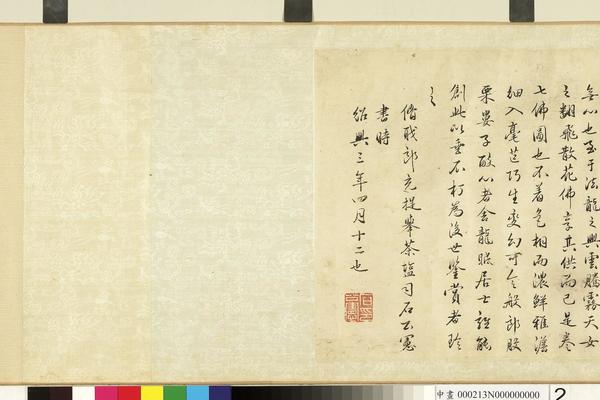 無心也至于法龍之興雲騰霧天女
之翻飛散花佛享其供而已是卷
七佛圖也不着色相而濃鮮雅澹
細入毫芒巧生變幻可令般郎股
栗婁子酸心者舍龍眠居士誰能
創此以垂不朽為後世鑒賞者珍
之
脩職郎充提舉茶塩司石公憲
書時
紹興三年四月十二也
中畫 000213N000000000
2